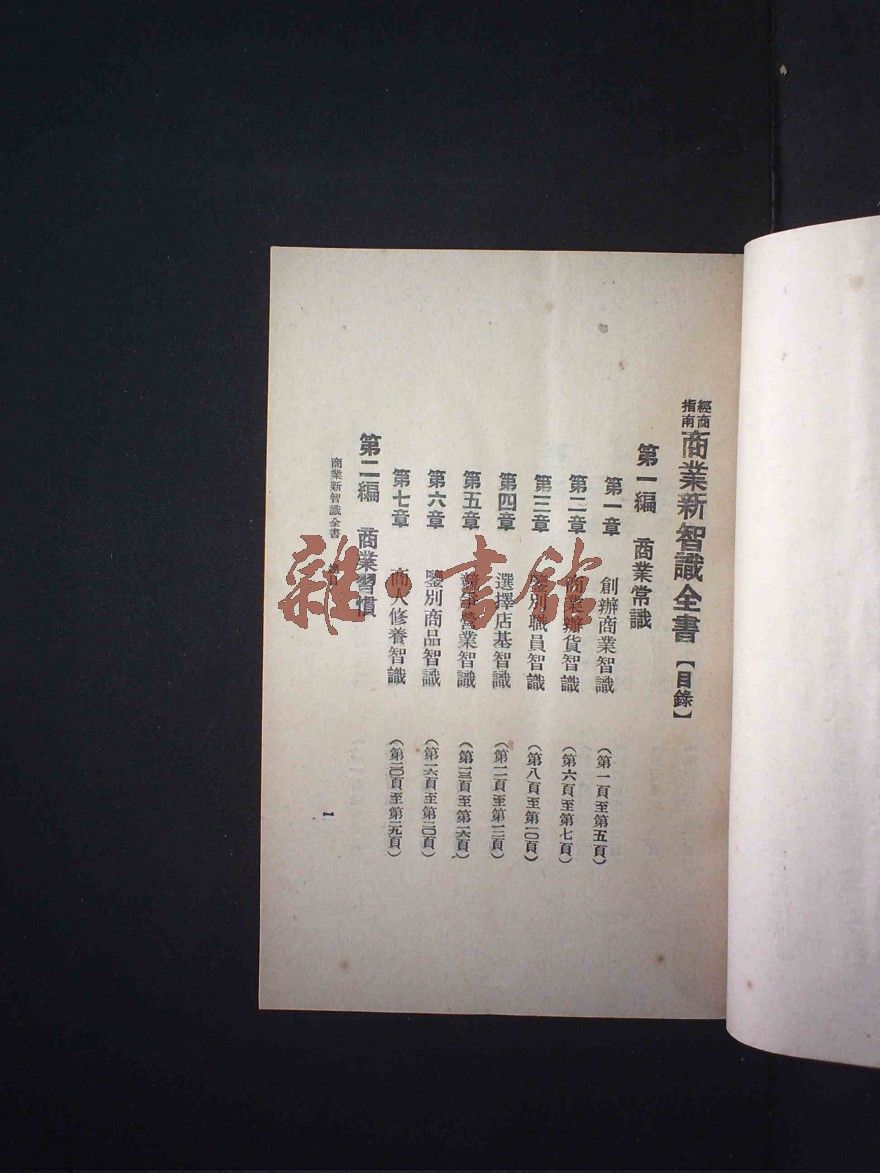 經商指南 商業新智識全書【目錄】
第一編 商業常識
第一章 創辦商業智識 (第一頁至第五頁)
第二章 商業辦貨智識 (第六頁至第七頁)
第三章 鑒別職員智識 (第八頁至第一〇頁)
第四章 選擇店基智識 (第一一頁至第一三頁)
第五章 競爭營業智識 (第一三頁至第一六頁)
第六章 鑒別商品智識 (第一六頁至第二〇頁)
第七章 商人修養智識 (第二〇頁至第二九頁)
第二編 商業習慣
商業新智識全書 總目 一
雜·書館